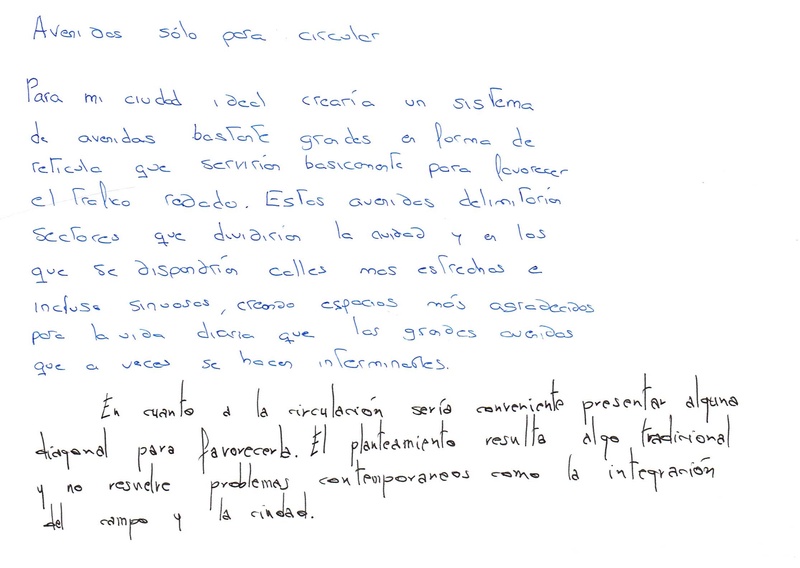 Avenidas sólo para circular
Para mi ciudad ideal crearía un sistema
de avenidas bastante grades en forma de
retícula que servirían basicamente para favorecer
el trafico rodado. Estas avenidas delimitarían
sectores que dividirían la ciudad y en los
que se dispondrían calles mas estrechas e
incluso sinuosas, creando espacios más agradecidos
para la vida diaria que las grades avenidas
que a veces se hacen interminables.
En cuanto a la circulación sería conveniente presentar alguna
diagonal para favorecerla. El planteamiento resulta algo tradicional
y no resuelve problemas contemporaneos como la integración
del campo y la ciudad.